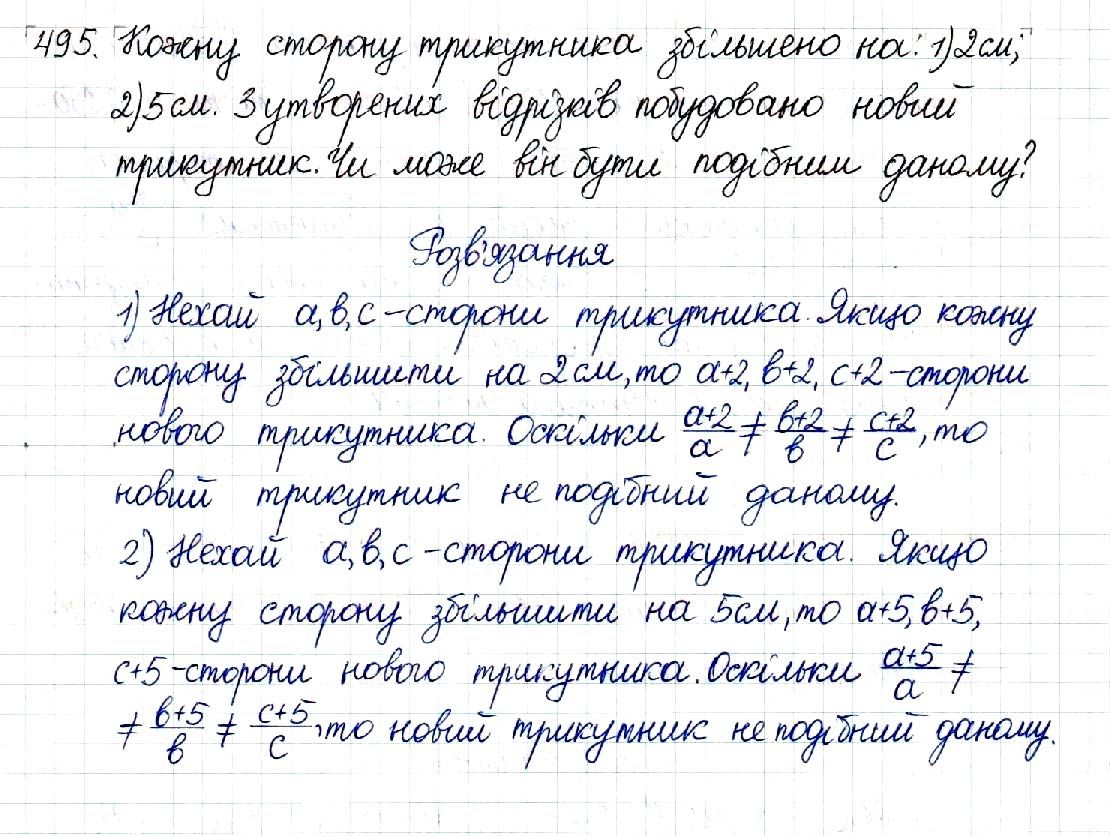 495. Кожну сторону трикутника збільшено на: 1) 2 см;
2) 5 см. З утворених відрізків побудовано новий
трикутник. Чи може він бути подібним даному?
Розв'язання
1) Нехай a, b, c – сторони трикутника. Якщо кожну
сторону збільшити на 2 см, то a+2, b+2, c+2 – сторони
нового трикутника. Оскільки (a+2)/a ≠ (b+2)/b ≠ (c+2)/c, то
новий трикутник не подібний даному.
2) Нехай a, b, c – сторони трикутника. Якщо
кожну сторону збільшити на 5 см, то a+5, b+5,
c+5 – сторони нового трикутника. Оскільки (a+5)/a ≠
≠ (b+5)/b ≠ (c+5)/c, то новий трикутник не подібний даному.